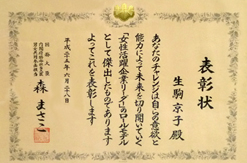 表彰状
生駒京子殿
あなたのチャレンジは自らの意欲と
能力によって未来を切り開いていく
「女性活躍企業リーダー」のロールモデル
として傑出したものであります
よってこれを表彰します
平成二十五年六月二十八日
森まさこ